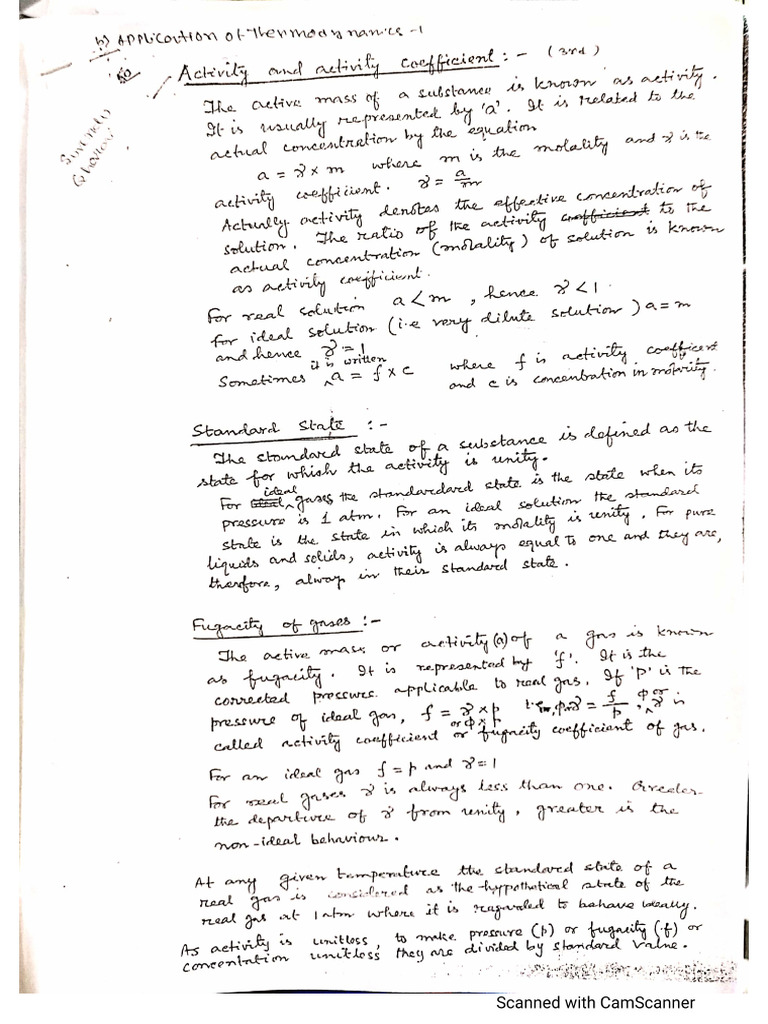 b) Application of Thermodynamics -1
Activity and activity Coefficient :- (3rd)
The active mass of a substance is known as activity.
It is usually represented by 'a'. It is related to the
actual concentration by the equation
a = γ × m where m is the molality and γ is the
activity coefficient. γ = a/m
Actually activity denotes the effective concentration of
solution. The ratio of the activity coefficient to the
actual concentration (molality) of solution is known
as activity coefficient.
For real solution a < m , hence γ < 1
for ideal solution (i.e very dilute solution) a = m
and hence γ = 1
Sometimes it is written a = f × c where f is activity coefficient
and c is concentration in molarity.
Standard State :-
The standard state of a substance is defined as the
state for which the activity is unity.
For ideal gases the standardard state is the state when its
pressure is 1 atm. For an ideal solution the standard
state is the state in which its molality is unity. For pure
liquids and solids, activity is always equal to one and they are,
therefore, always in their standard state.
Fugacity of gases :-
The active mass or activity (a) of a gas is known
as fugacity. It is represented by 'f'. It is the
corrected pressure applicable to real gas. If 'P' is the
pressure of ideal gas, f = γ × p or φ × p γ = f/p , φ or γ is
called activity coefficient or fugacity coefficient of gas.
For an ideal gas f = p and γ = 1
For real gases γ is always less than one. Greater
the departure of γ from unity, greater is the
non-ideal behaviour.
At any given temperature the standard state of a
real gas is considered as the hypothetical state of the
real gas at 1 atm where it is regarded to behave ideally.
As activity is unitless, to make pressure (p) or fugacity (f) or
concentration unitless they are divided by standard value.
Scanned with CamScanner